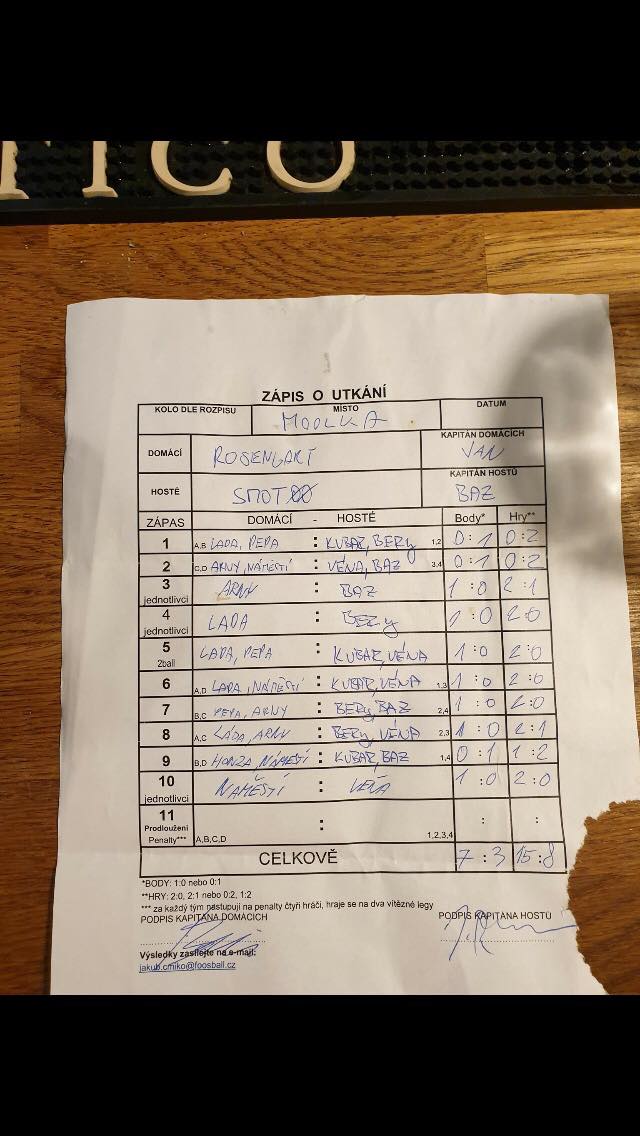 MCO
ZÁPIS O UTKÁNÍ
KOLO DLE ROZPISU MÍSTO DATUM
MOOLKA
DOMÁCÍ ROSENGART KAPITÁN DOMÁCÍCH
JAN
HOSTÉ SMOT KAPITÁN HOSTŮ
BAZ
ZÁPAS DOMÁCÍ - HOSTÉ Body* Hry**
1 A,B LADA, PEPA : KUBAZ, BERY 1,2 0:1 0:2
2 C,D ARNY, NÁMĚSTÍ : VÉNA, BAZ 3,4 0:1 0:2
3 jednotlivci ARNY : BAZ 1:0 2:1
4 jednotlivci LADA : BERY 1:0 2:0
5 2ball LADA, PEPA : KUBAZ, VÉNA 1:0 2:0
6 A,D LADA, NÁMĚSTÍ : KUBAZ, VÉNA 1,3 1:0 2:0
7 B,C PEPA, ARNY : BERY, BAZ 2,4 1:0 2:0
8 A,C LADA, ARNY : BERY, VÉNA 2,3 1:0 2:1
9 B,D HONZA, NÁMĚSTÍ : KUBAZ, BAZ 1,4 0:1 1:2
10 jednotlivci NÁMĚSTÍ : VÉNA 1:0 2:0
11 Prodloužení Penalty*** A,B,C,D : 1,2,3,4 : :
CELKOVĚ 7:3 15:8
*BODY: 1:0 nebo 0:1
**HRY: 2:0, 2:1 nebo 0:2, 1:2
*** za každý tým nastupují na penalty čtyři hráči, hraje se na dva vítězné legy
PODPIS KAPITÁNA DOMÁCÍCH PODPIS KAPITÁNA HOSTŮ
Výsledky zasílejte na e-mail:
jakub.cmiko@foosball.cz